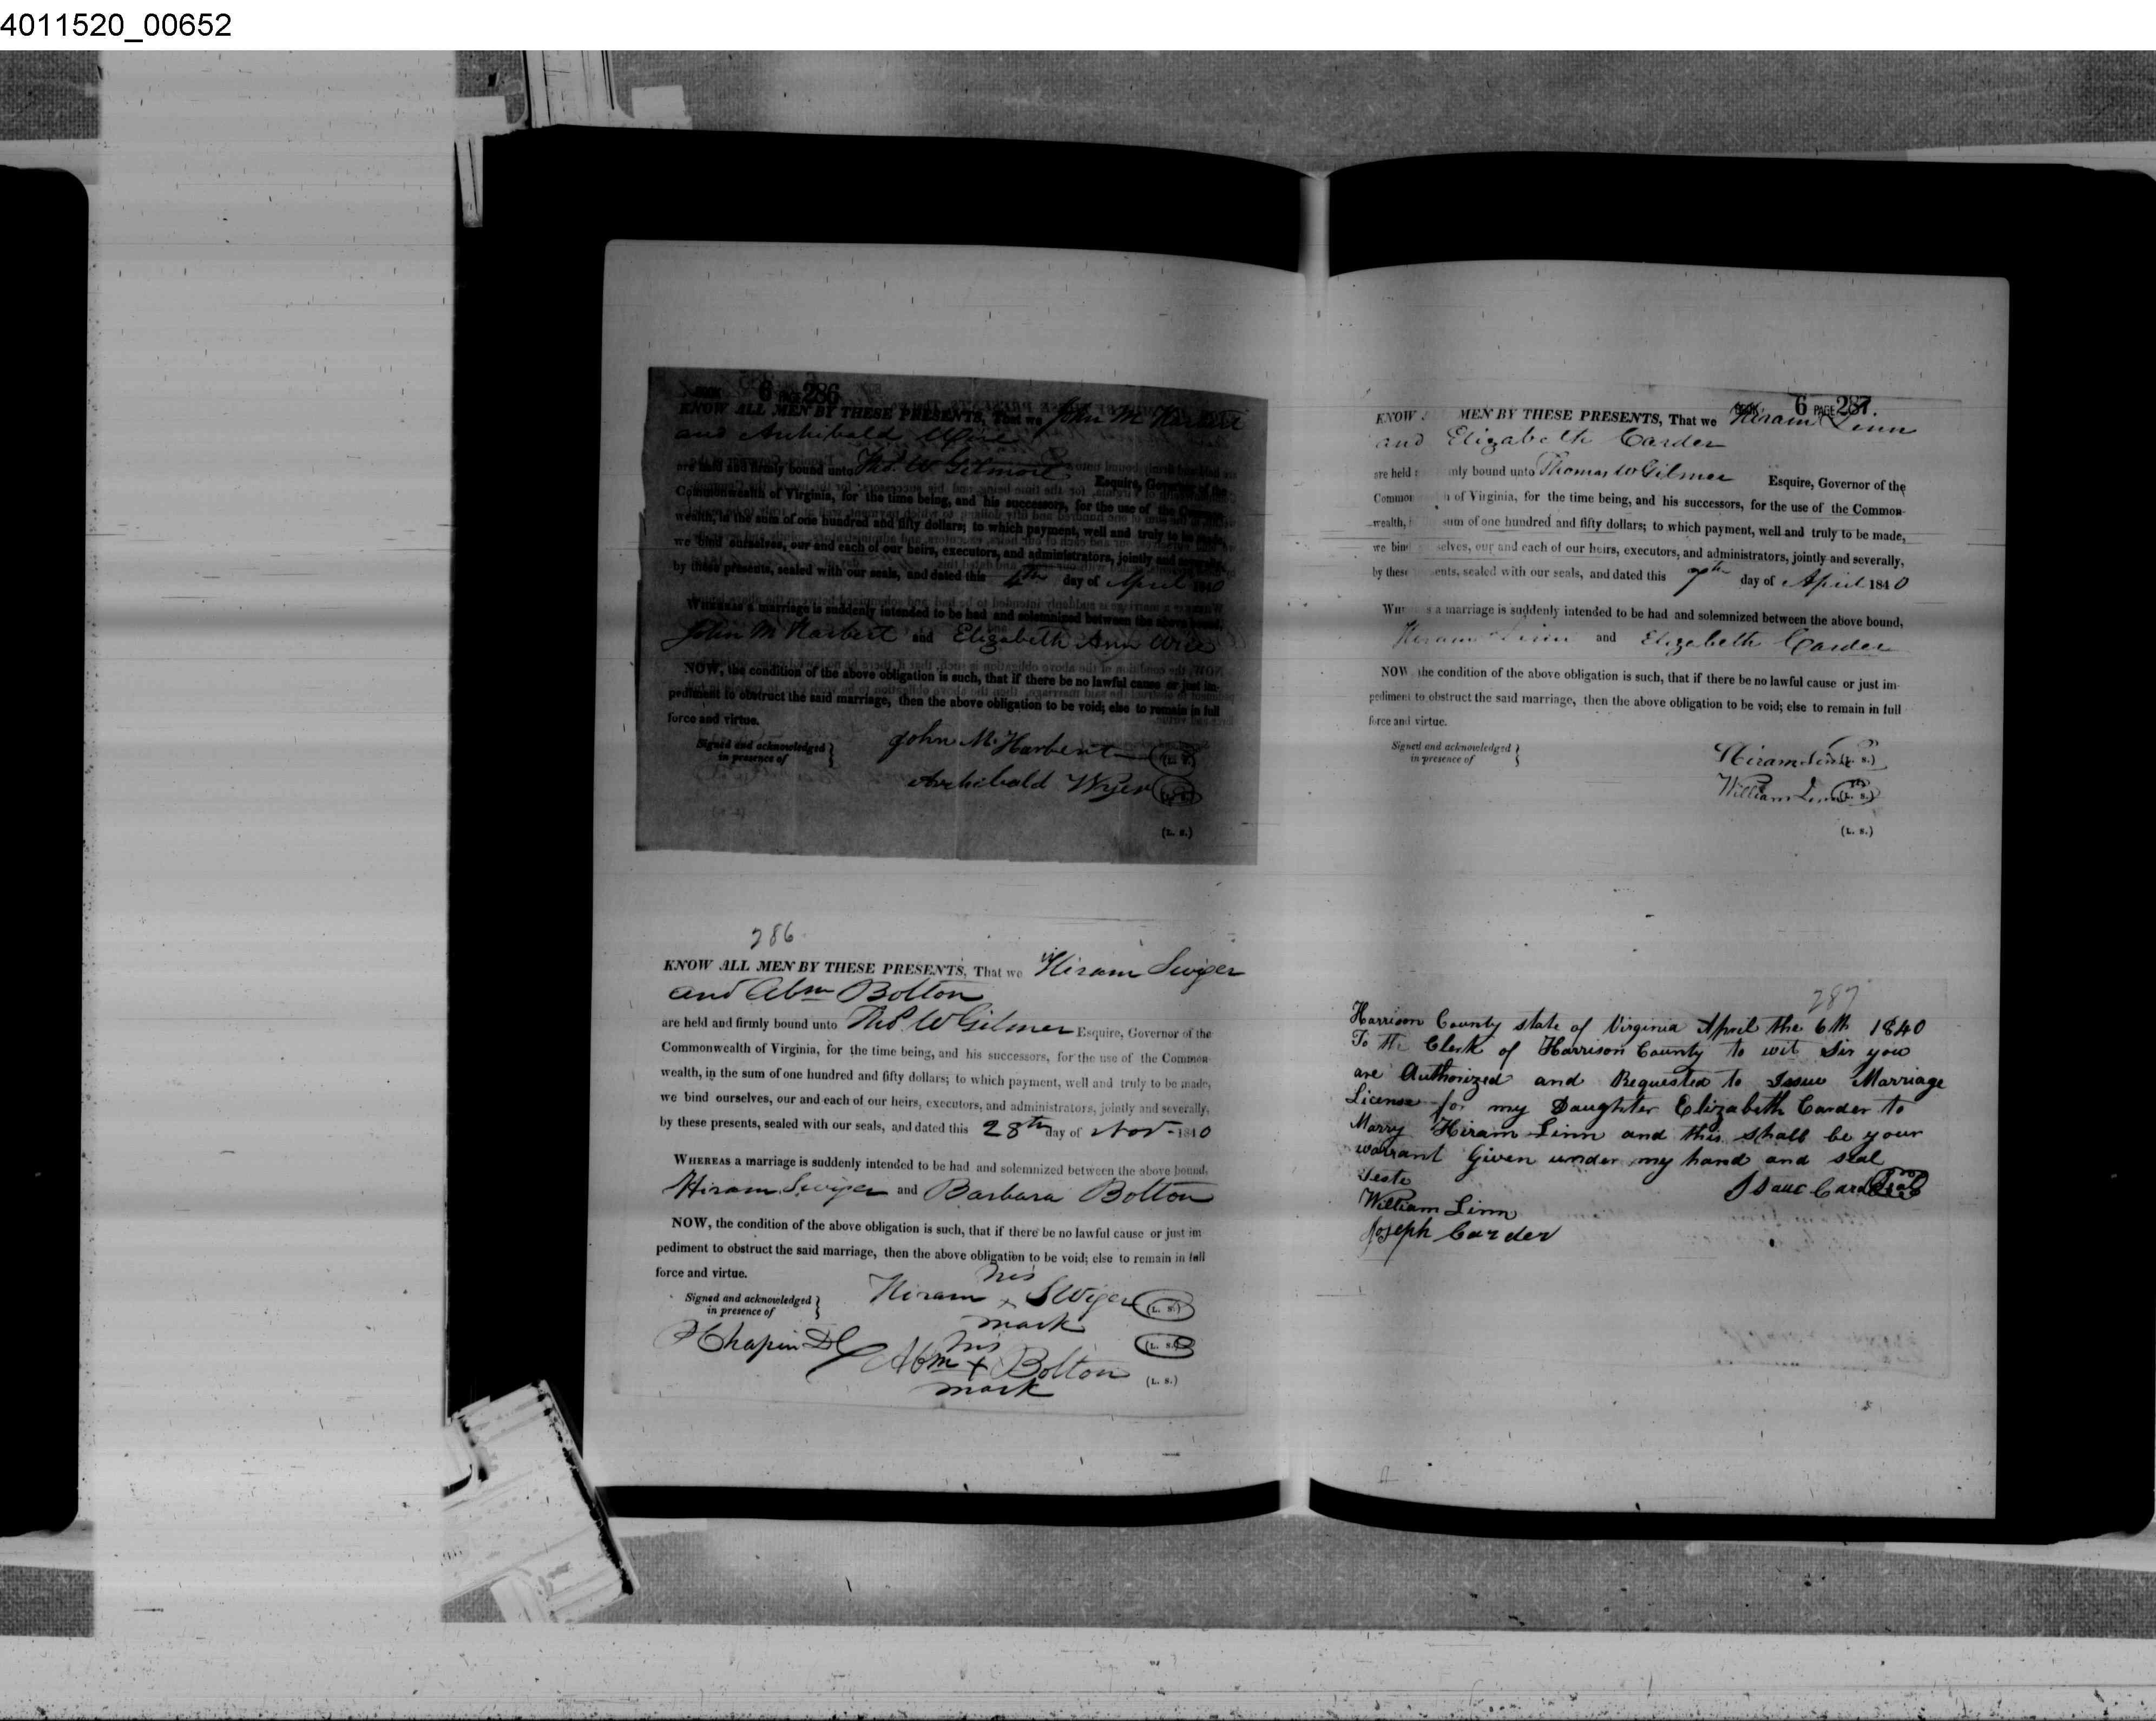 4011520_00652
BOOK 6 PAGE 286
KNOW ALL MEN BY THESE PRESENTS, That we John M Harbert
and Archibald Wire
are held and firmly bound unto Tho. W Gilmore Esquire, Governor of the
Commonwealth of Virginia, for the time being, and his successors, for the use of the Common-
wealth, in the sum of one hundred and fifty dollars; to which payment, well and truly to be made,
we bind ourselves, our and each of our heirs, executors, and administrators, jointly and severally,
by these presents, sealed with our seals, and dated this day of April 1840
WHEREAS a marriage is suddenly intended to be had and solemnized between the above bound,
John M Harbert and Elizabeth Ann Wire
NOW, the condition of the above obligation is such, that if there be no lawful cause or just im-
pediment to obstruct the said marriage, then the above obligation to be void; else to remain in full
force and virtue.
Signed and acknowledged
in presence of
John M. Harbert (L. S.)
Archibald Wyer (L. S.)
(L. S.)
286
KNOW ALL MEN BY THESE PRESENTS, That we Hiram Swiger
and Abm Bolton
are held and firmly bound unto Tho.s W Gilmer Esquire, Governor of the
Commonwealth of Virginia, for the time being, and his successors, for the use of the Common-
wealth, in the sum of one hundred and fifty dollars; to which payment, well and truly to be made,
we bind ourselves, our and each of our heirs, executors, and administrators, jointly and severally,
by these presents, sealed with our seals, and dated this 28th day of Nov 1840
WHEREAS a marriage is suddenly intended to be had and solemnized between the above bound,
Hiram Swiger and Barbara Bolton
NOW, the condition of the above obligation is such, that if there be no lawful cause or just im-
pediment to obstruct the said marriage, then the above obligation to be void; else to remain in full
force and virtue.
Signed and acknowledged
in presence of
his
Hiram x Swiger (L. S.)
mark
Chapin DC
his
Abm + Bolton (L. S.)
mark
(L. S.)
BOOK 6 PAGE 287.
KNOW MEN BY THESE PRESENTS, That we Hiram Linn
and Elizabeth Carder
are held mly bound unto Thomas W Gilmer Esquire, Governor of the
Common of Virginia, for the time being, and his successors, for the use of the Common-
wealth, sum of one hundred and fifty dollars; to which payment, well and truly to be made,
we bind selves, our and each of our heirs, executors, and administrators, jointly and severally,
by these ents, sealed with our seals, and dated this 7th day of April 1840
WH s a marriage is suddenly intended to be had and solemnized between the above bound,
Hiram Linn and Elizabeth Carder
NOW the condition of the above obligation is such, that if there be no lawful cause or just im-
pediment to obstruct the said marriage, then the above obligation to be void; else to remain in full
force and virtue.
Signed and acknowledged
in presence of
Hiram Linn (L. S.)
William Linn (L. S.)
(L. S.)
287
Harrison County state of Virginia April the 6th 1840
To the Clerk of Harrison County to wit Sir you
are Authorized and Requested to Issue Marriage
License for my Daughter Elizabeth Carder to
Marry Hiram Linn and this shall be your
warrant Given under my hand and seal
Teste
Isaac Carder Seal
William Linn
Joseph Carder